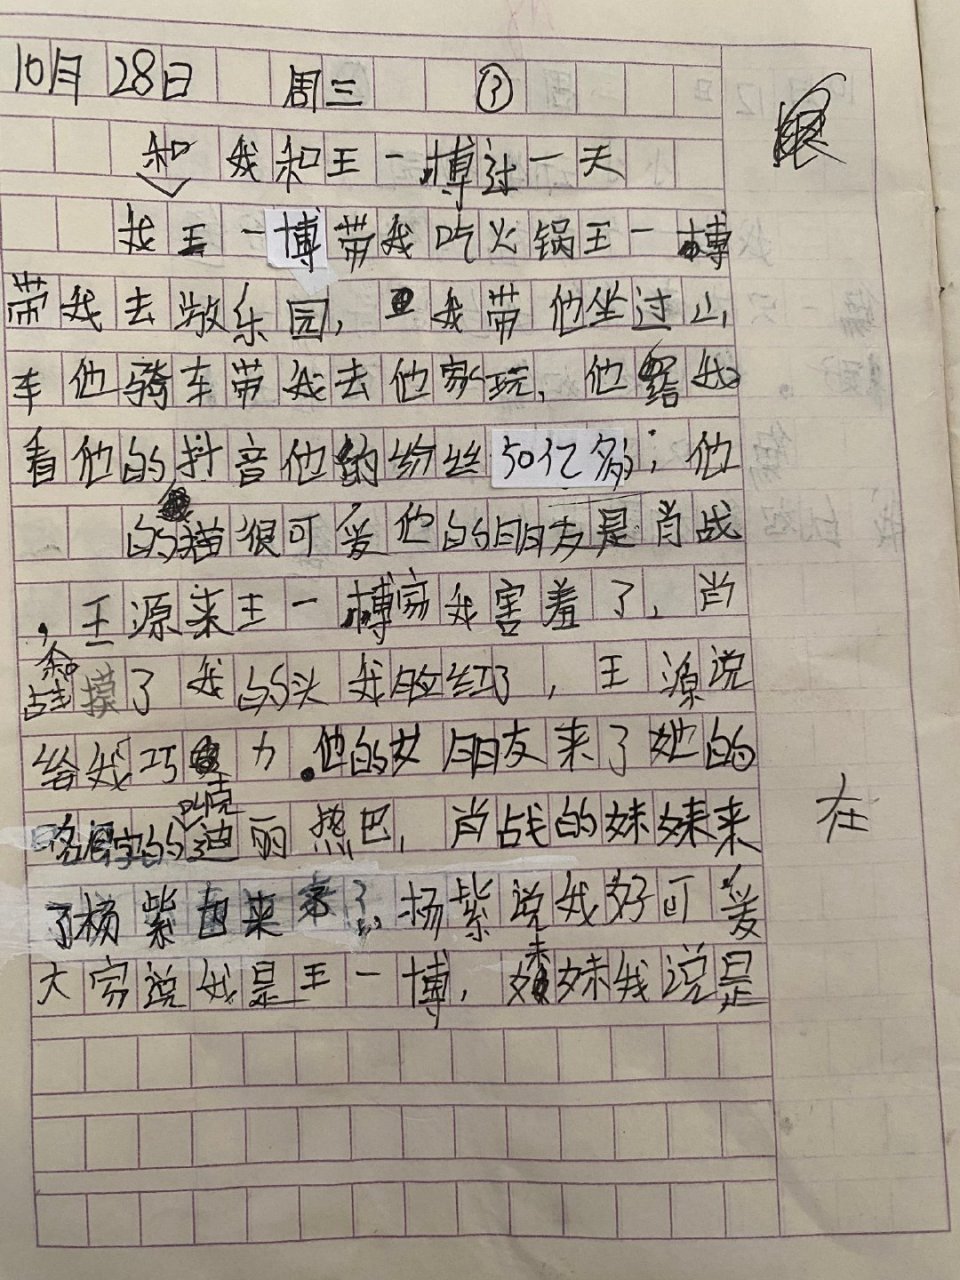 10月28日 周三 ③
和 我和王一博过一天
我王一博带我吃火锅王一博
带我去游乐园，我带他坐过山
车他骑车带我去他家玩，他给我
看他的抖音他的粉丝50亿多；他
的猫很可爱他的朋友是肖战
，王源来王一博家我害羞了，肖
战摸了我的头我脸红了，王源说
给我巧力.他的女朋友来了她的
名字的叫迪丽热巴，肖战的妹妹来
了杨紫也来了，杨紫说我好可爱
大家说我是王一博，妹妹我说是
在